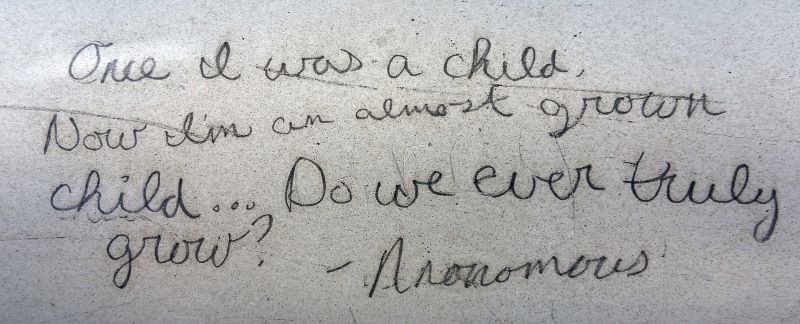 Once I was a child.
Now I'm an almost grown
child... Do we ever truly
grow?
- Anonomous